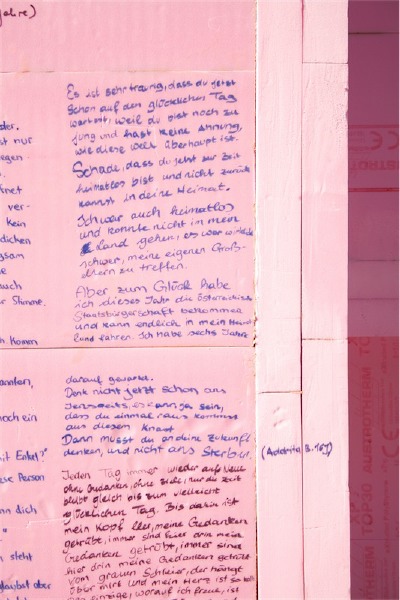 Jahre)
der.
st nur
egen
fnet
ver-
kein
dicken
gsam
e
auch
r Stimme.
h Komm
Es ist sehr traurig, dass du jetzt
schon auf den glücklichen Tag
wartest, weil du bist noch zu
jung und hast keine Ahnung,
wie diese Welt überhaupt ist.
Schade, dass du jetzt zur Zeit
heimatlos bist und nicht zurück
kannst in deine Heimat.
Ich war auch heimatlos
und konnte nicht in mein
land gehen, es war wirklich
schwer, meine eigenen Groß-
eltern zu treffen.
Aber zum Glück habe
ich dieses Jahr die österreichische
Staatsbürgerschaft bekommen
und kann endlich in mein Heimat
land fahren. Ich habe sechs Jahre
annten,
noch ein
mit Enkel?"
ese Person
nn dich
"
n steht
glaubst aber
darauf gewartet.
Denk nicht jetzt schon ans
Jenseits, es kann ja sein,
dass du einmal raus kommst
aus diesem Knast
Dann musst du an deine Zukunft
denken, und nicht ans Sterben.
(Addrita B. 16J)
Jeden Tag immer wieder aufs Neue
ohne Gedanken, ohne Ziele, nur die Zeit
bleibt gleich bis zum vielleicht
glücklichen Tag. Bis dahin ist
mein Kopf leer, meine Gedanken
getrübt, immer sind hier drin meine
Gedanken getrübt, immer sind
hier drin meine Gedanken getrübt
vom grauen Schleier, der hängt
über mir und mein Herz ist so
das einzige, worauf ich freue, ist
TOP30 AUSTROTHERM TO
THERM